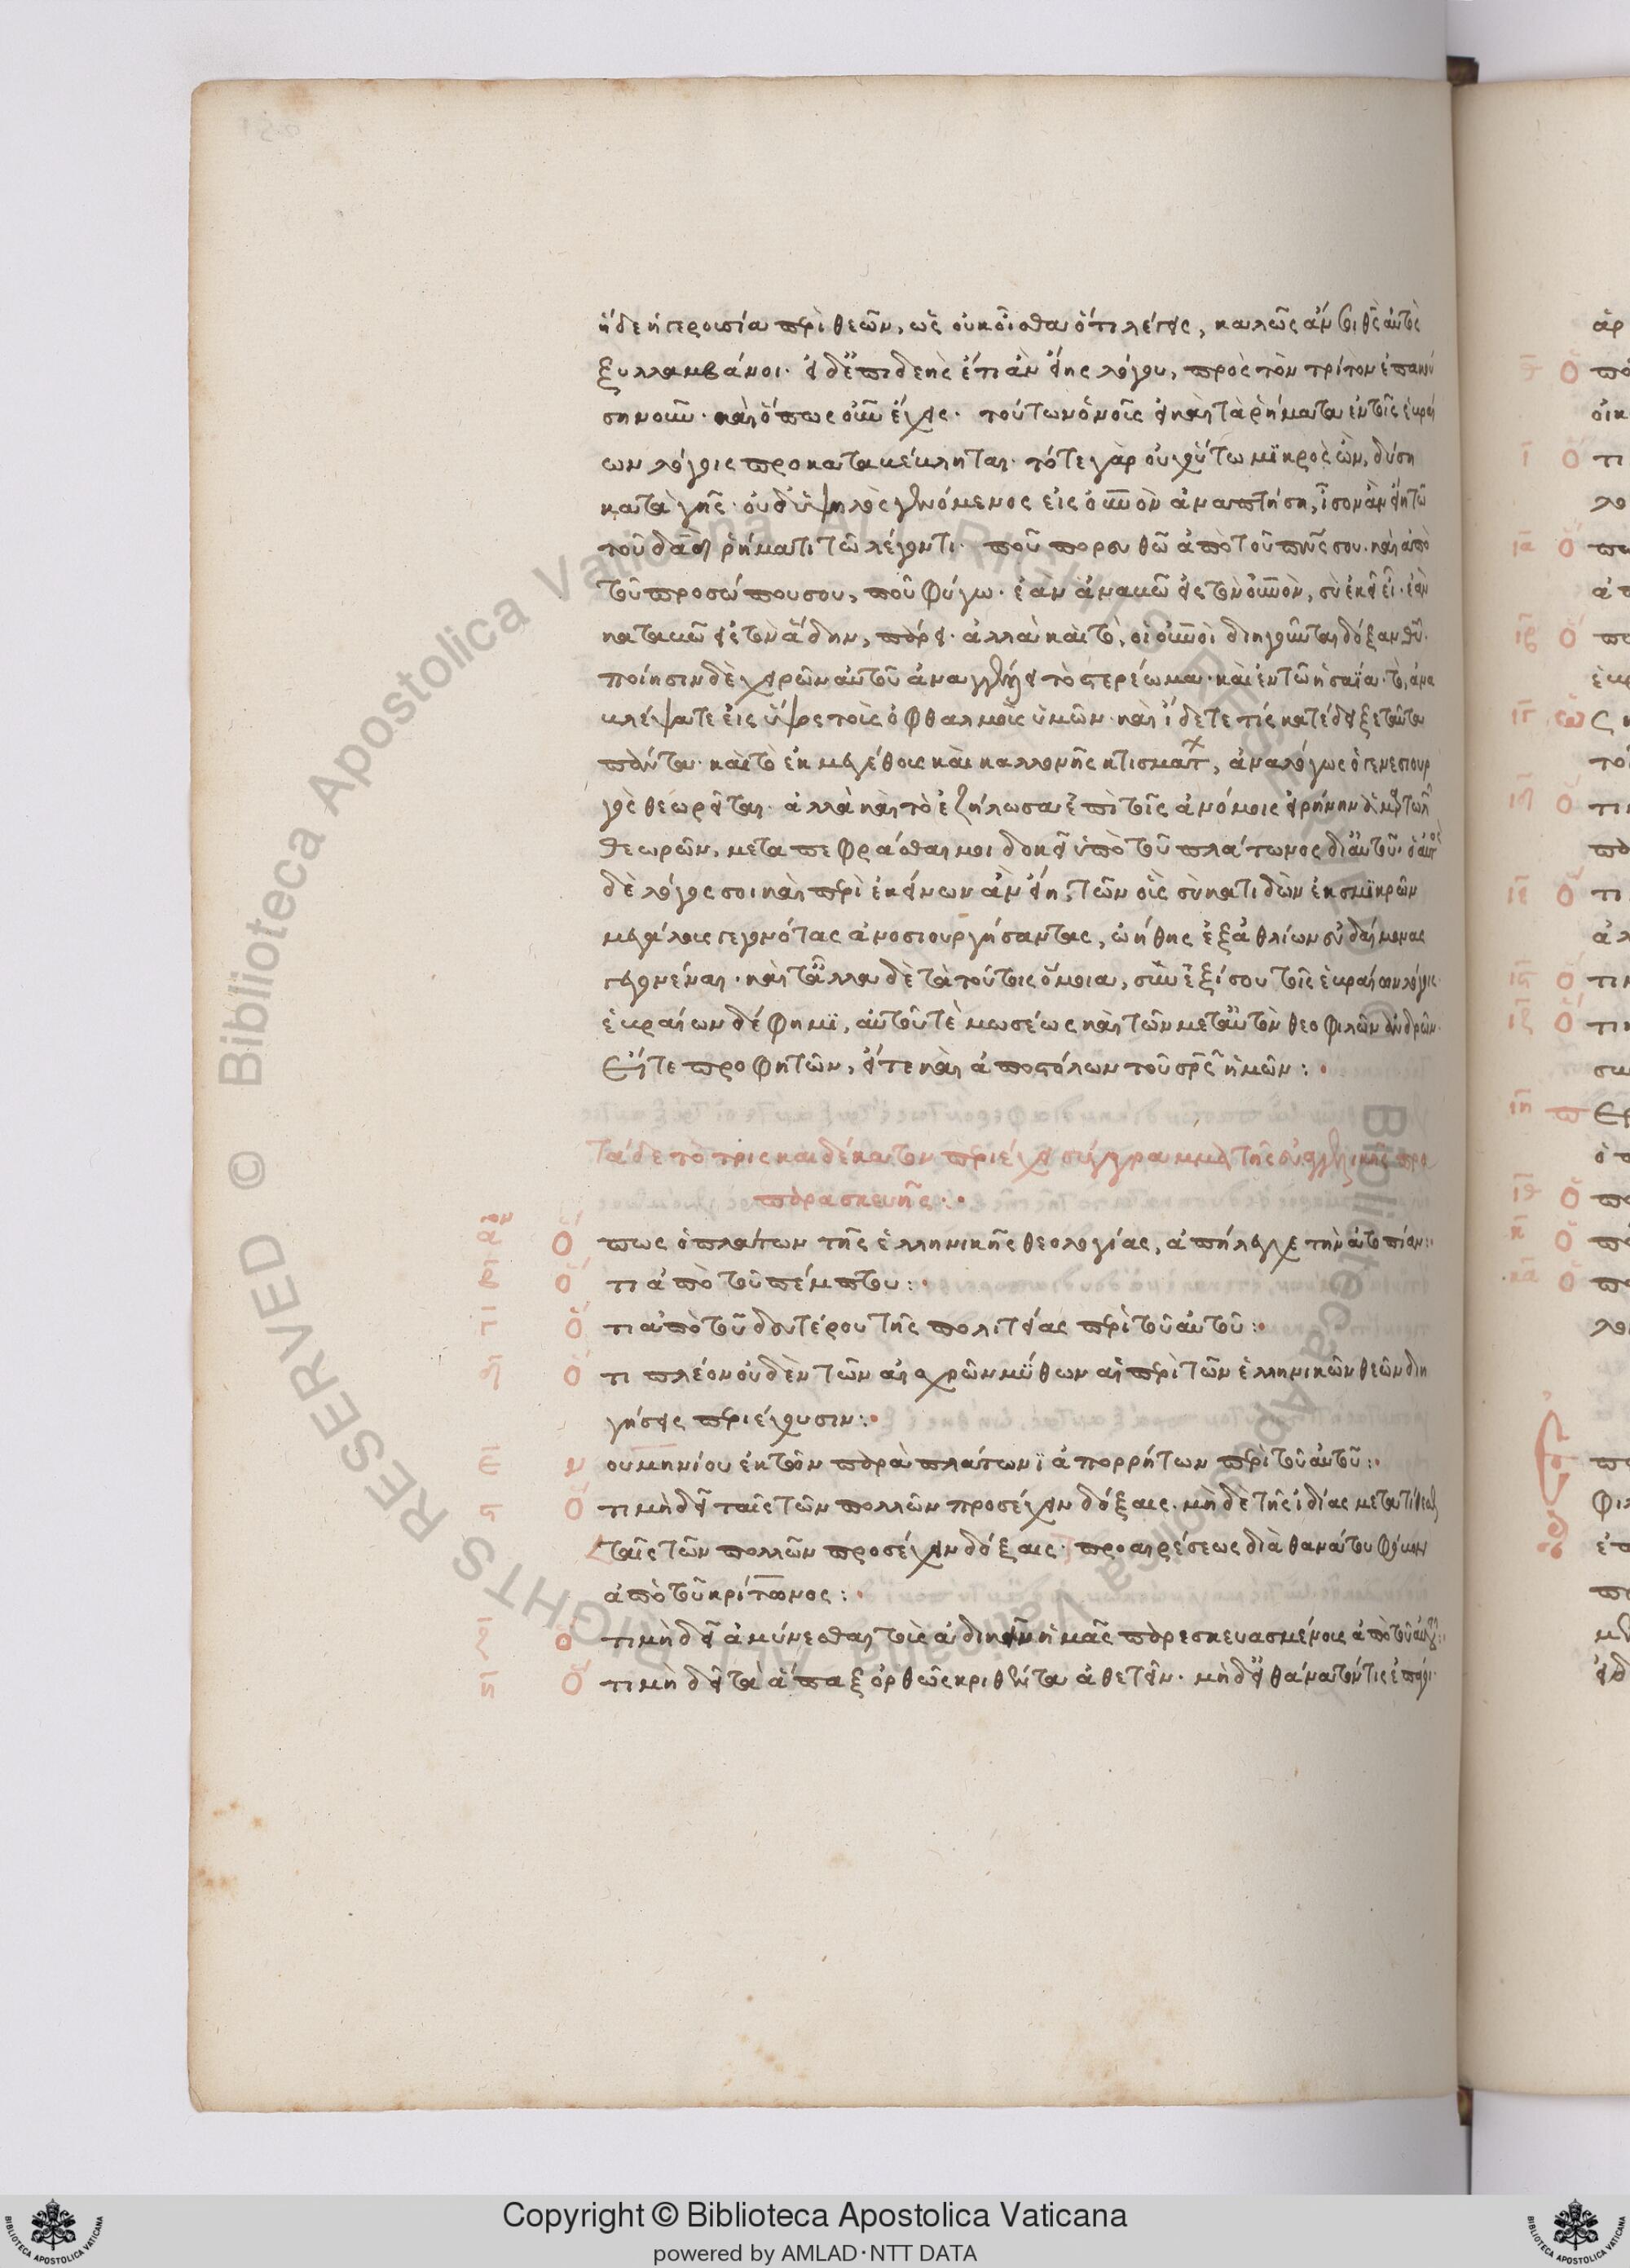 ἥδε ἡ γερουσία περὶ θεῶν, ὡς οὐκ οἶσθα ὅτι λέγεις, καλῶς ἄν σοι θεὸς αὐτὸς
ξυλλαμβάνοι. εἰ δ' ἐπιδεὴς ἔτι ἂν εἴης λόγου, πρὸς τὸν τρίτον ἐπακού
ση νοῦν. καὶ ὅπως οὖν ἔχεις. τούτων ὁ νοῦς εἰ καὶ τὰ ῥήματα ἐν τοῖς ἑβραί
ων λόγοις προκαταβέβληται. τό τε γὰρ οὐχ οὕτω μϊκρὸς ὢν, δύσῃ
κατὰ γῆς. οὐδ' ὑψηλὸς γενόμενος εἰς οὐνὸν ἀναπτήσῃ, ἶσον ἂν εἴη τῶ
τοῦ δαδ ῥήματι τῶ λέγοντι. ποῦ πορευθῶ ἀπὸ τοῦ πνς σου. καὶ ἀπὸ
τοῦ προσώπου σου, ποῦ φύγω. ἐὰν ἀναβῶ εἰς τὸν οὐνὸν, σὺ ἐκεῖ εἶ. ἐὰν
καταβῶ εἰς τὸν ἅδην, πάρει. ἀλλὰ καὶ τὸ, οἱ οὐνοὶ διηγοῦνται δόξαν θυ.
ποίησιν δὲ χειρῶν αὐτοῦ ἀναγγέλλει τὸ στερέωμα. καὶ ἐν τῶ ἡσαΐα. τὸ, ἀνα
βλέψατε εἰς ὕψος τοῖς ὀφθαλμοῖς ὑμῶν. καὶ ἴδετε τίς κατέδειξε ταῦτα
πάντα. καὶ τὸ ἐκ μεγέθους καὶ καλλονῆς κτισμάτ, ἀναλόγως ὁ γενεσιουρ
γὸς θεωρεῖται. ἀλλὰ καὶ τὸ ἐζήλωσα ἐπὶ τοῖς ἀνόμοις εἰρήνην ἁμαρτωλ
θεωρῶν, μεταπεφράσθαι μοι δοκεῖ ὑπὸ τοῦ πλάτωνος δι' αὐτοῦ. ὁ αὐτ
δὲ λόγος σοι καὶ περὶ ἐκείνων ἂν εἴη, τῶν οἷς σὺ κατιδὼν ἐκ σμϊκρῶν
μεγάλους γεγονότας ἀνοσιουργήσαντας, ᾠήθης ἐξ ἀθλίων εὐδαίμονας
γεγονέναι. καὶ τἄλλα δὲ τὰ τούτοις ὅμοια, σὺν ἐξίσου τοῖς ἑβραίων λόγοις.
ἑβραίων δέ φημϊ, αὐτοῦ τὲ μωσέως καὶ τῶν μετ' αὐτὸν θεοφιλῶν ἀνδρῶν.
εἴτε προφητῶν, εἴτε καὶ ἀποστόλων τοῦ σρς ἡμῶν:
τάδε τὸ τρισκαιδέκατον περιέχει σύγγραμμα τῆς εὐαγγελικῆς προ
παρασκευῆς:
α ον Ὅπως ὁ πλάτων τῆς ἑλληνικῆς θεολογίας, ἀπήλεγχε τὴν ἀτοπίαν:
β Ὅτι ἀπὸ τοῦ πέμπτου:
γ Ὅτι ἀπὸ τοῦ δευτέρου τῆς πολιτείας περὶ τοῦ αὐτοῦ:
δ Ὅτι πλέον οὐδὲν τῶν αἰσχρῶν μύθων αἱ περὶ τῶν ἑλληνικῶν θεῶν διη
γήσεις περιέχουσιν:
ε νουμηνίου ἐκ τῶν παρὰ πλάτωνϊ ἀπορρήτων περὶ τοῦ αὐτοῦ:
ς Ὅτι μὴ δεῖ ταῖς τῶν πολλῶν προσέχειν δόξαις. μὴ δὲ τῆς ἰδίας μετατίθεσθ
ταῖς τῶν πολλῶν προσέχειν δόξαις. προαιρέσεως διὰ θανάτου φόβον
ἀπὸ τοῦ κρίτωνος:
ζ Ὅτι μὴ δεῖ ἀμύνεσθαι τοὺς ἀδικεῖν ἡμᾶς παρεσκευασμένους ἀπὸ τοῦ αὐτοῦ:
η Ὅτι μὴ δεῖ τὰ ἅπαξ ὀρθῶς κριθέντα ἀθετεῖν. μὴ δ' εἰ θάνατόν τις ἐπάγοι.
Copyright © Biblioteca Apostolica Vaticana
powered by AMLAD·NTT DATA